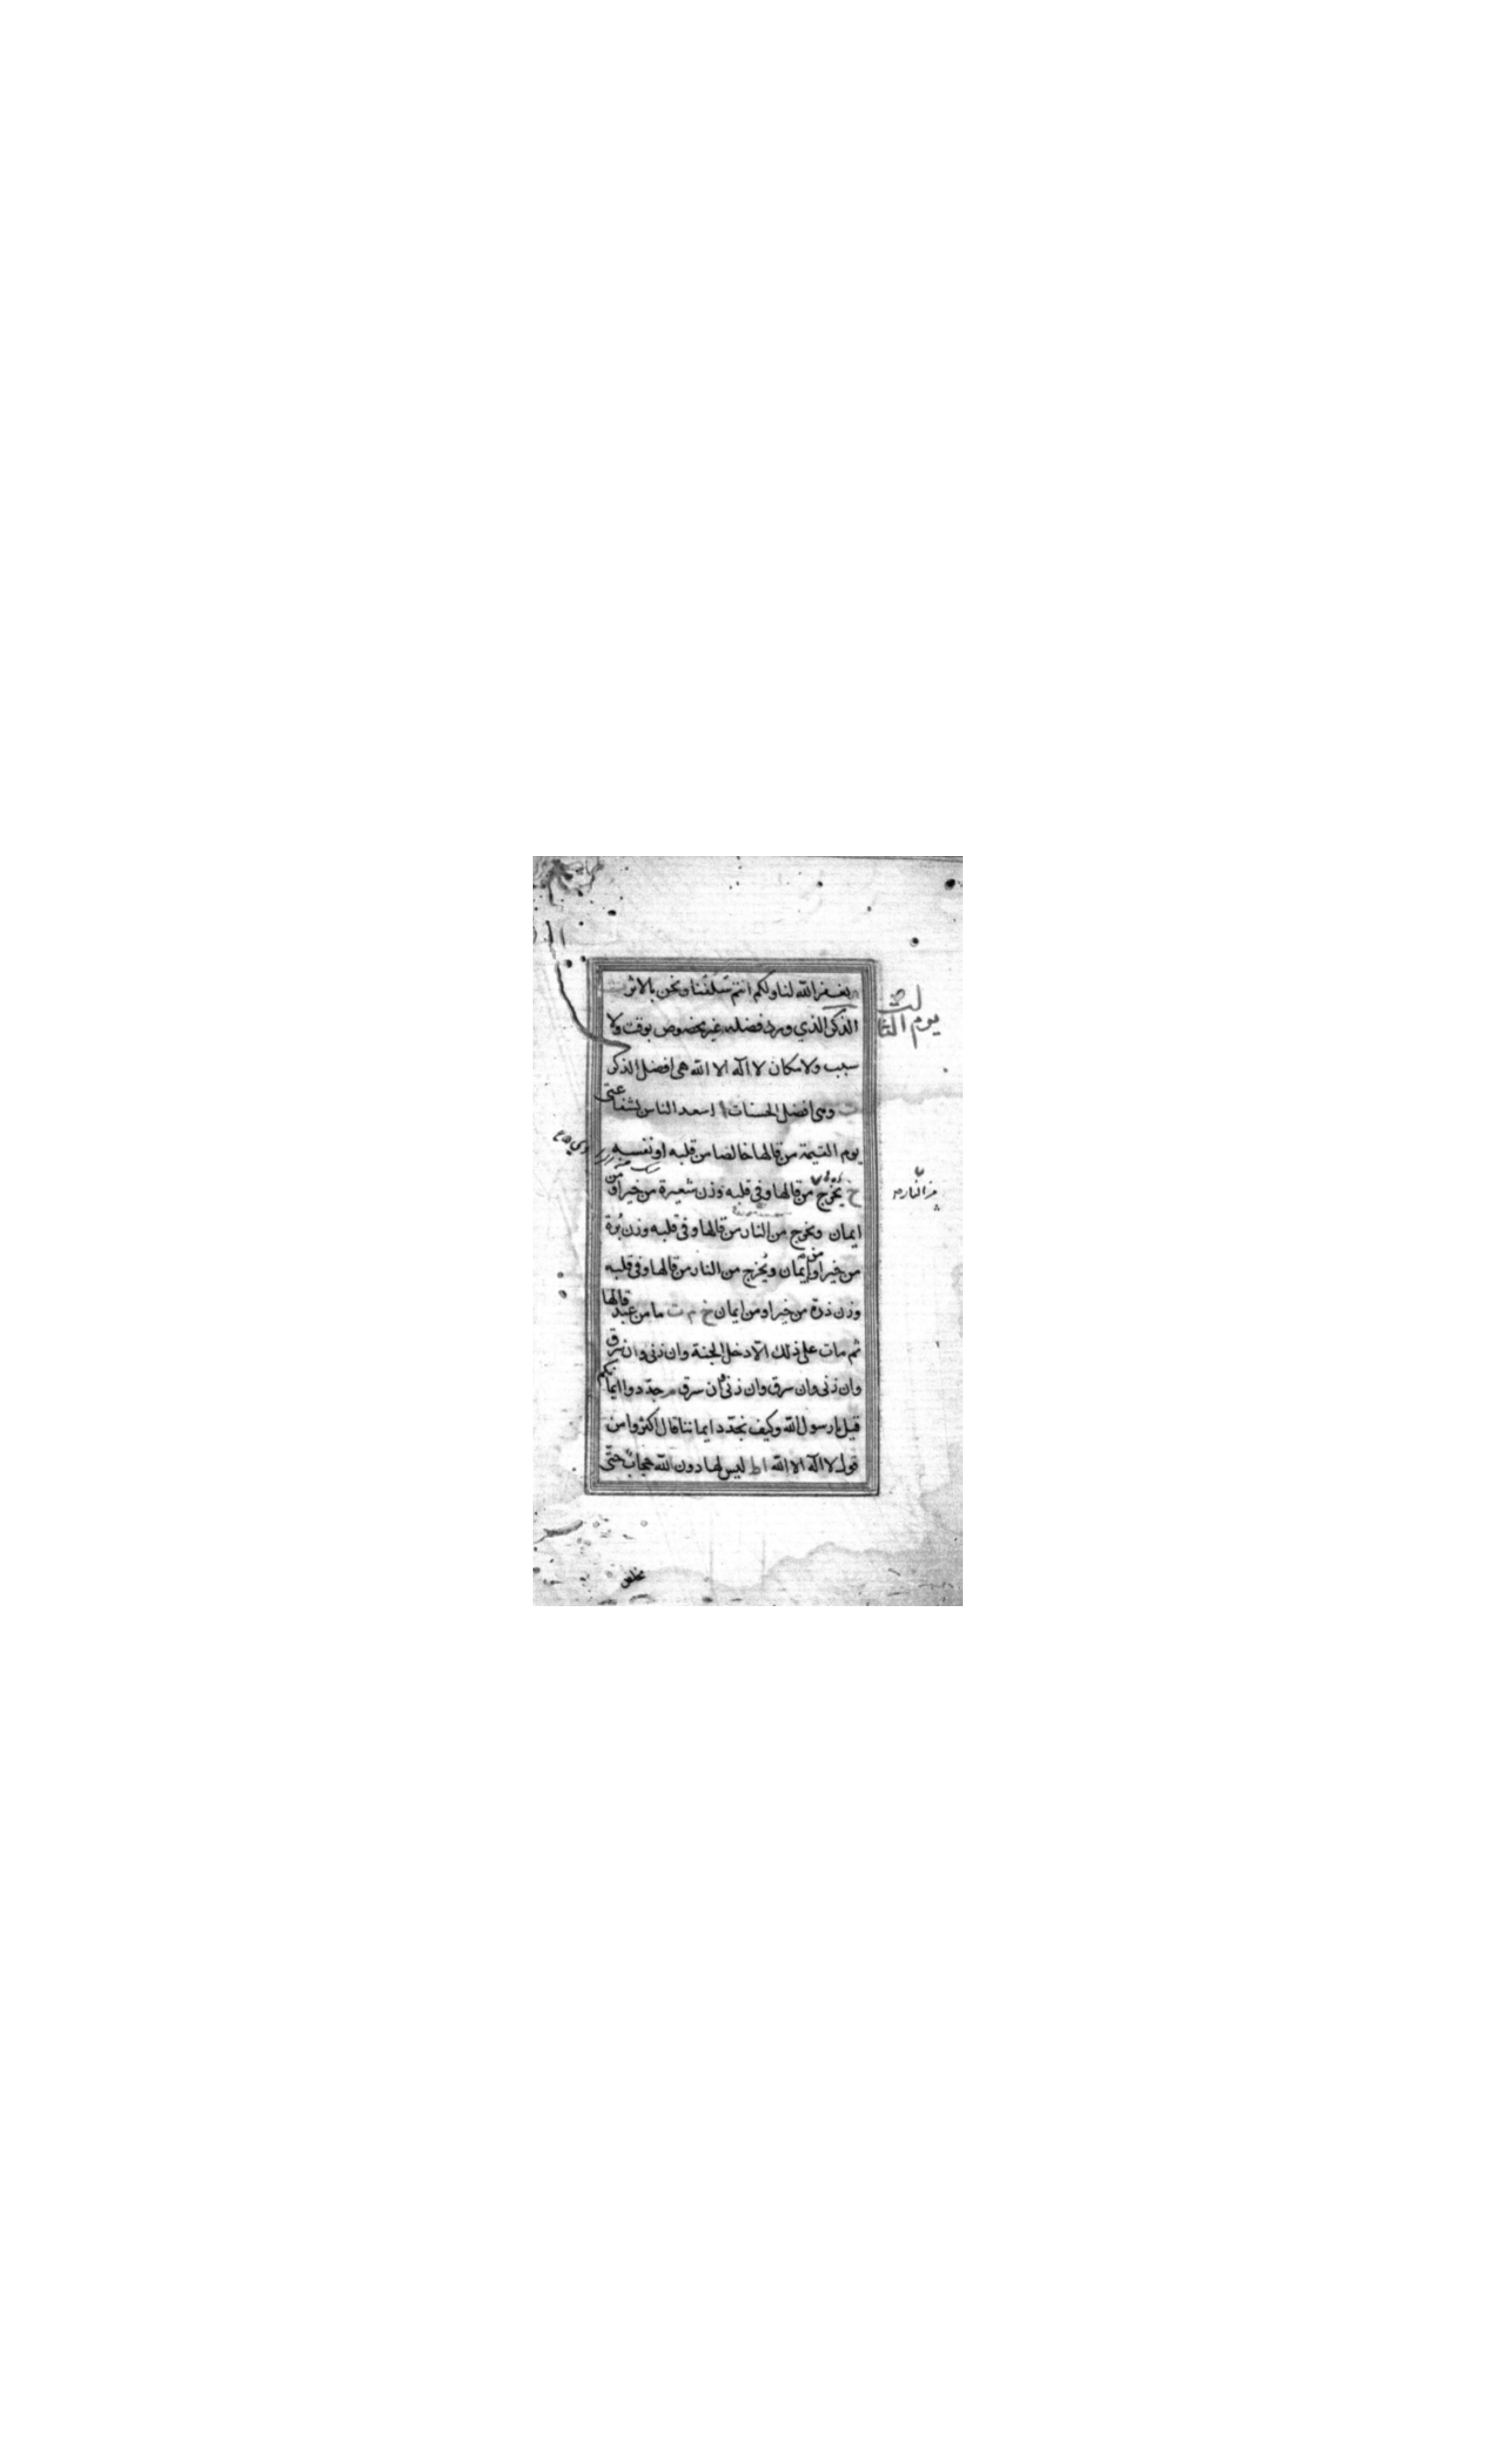 يغفر الله لنا ولكم انتم سلفنا ونحن بالاثر ت
الذكر الذي ورد فضله غير مخصوص بوقت ولا
سبب ولا مكان لا اله الا الله هى افضل الذكر
ت وهى افضل الحسنات ا اسعد الناس بشفاعتى
يوم القيمة من قالها خالصا من قلبه او نفسه
خ يخرج من قالها وفى قلبه وزن شعيرة من خير او من
ايمان ويخرج من النار من قالها وفى قلبه وزن برة
من خير او من ايمان ويخرج من النار من قالها وفى قلبه
وزن ذرة من خير او من ايمان خ م ت ما من عبد قالها
ثم مات على ذلك الا دخل الجنة وان زنى وان سرق
وان زنى وان سرق وان زنى وان سرق م جددوا ايمانكم
قيل يا رسول الله وكيف نجدد ايماننا قال اكثروا من
قول لا اله الا الله ا ط ليس لها دون الله حجاب حتى
يوم الثالث
من النار
تخلص